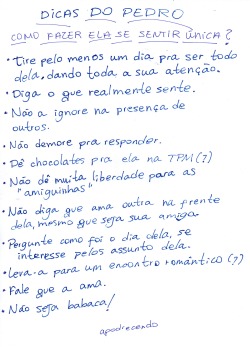 DICAS DO PEDRO
COMO FAZER ELA SE SENTIR ÚNICA?
• Tire pelo menos um dia pra ser todo
dela, dando toda a sua atenção.
• Diga o que realmente sente.
• Não a ignore na presença de
outros.
• Não demore pra responder.
• Dê chocolates pra ela na TPM (?)
• Não dê muita liberdade para as
"amiguinhas"
• Não diga que ama outra na frente
dela, mesmo que seja sua amiga.
• Pergunte como foi o dia dela, se
interesse pelos assunto dela.
• Leva-a para um encontro romântico (?)
• Fale que a ama.
• Não seja babaca!
apodrecendo